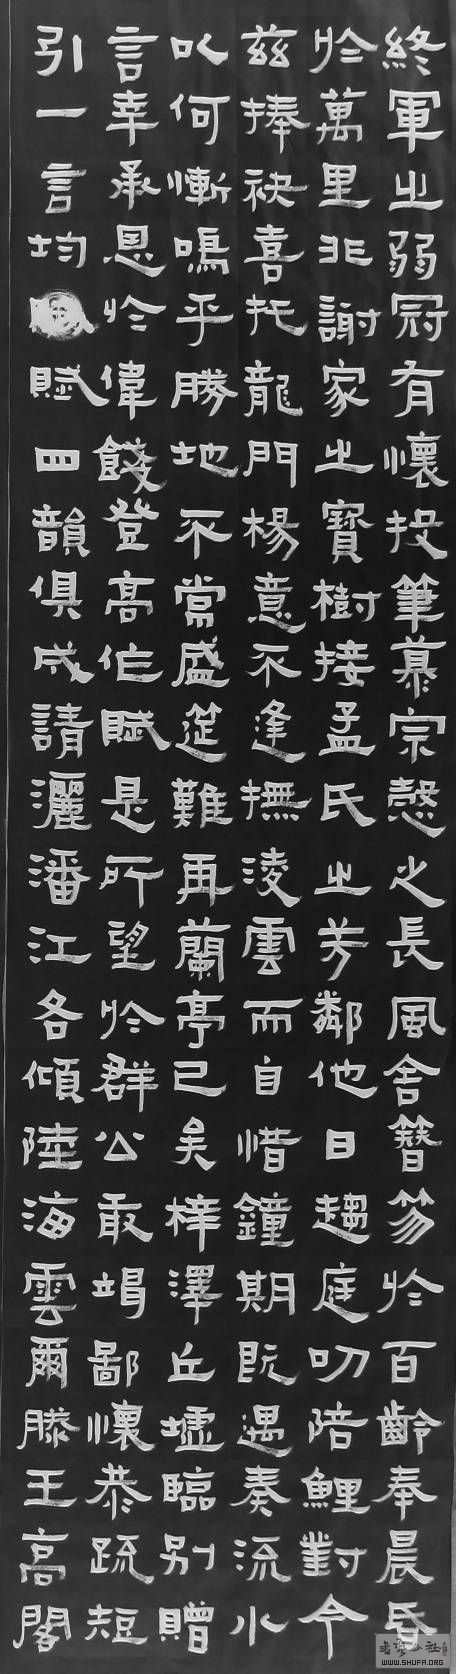 終軍之弱冠有懷投筆慕宗慤之長風舍簪笏於百齡奉晨昏
於萬里非謝家之寶樹接孟氏之芳鄰他日趨庭叨陪鯉對今
茲捧袂喜托龍門楊意不逢撫淩雲而自惜鐘期既遇奏流水
以何慚鳴乎勝地不常盛筵難再蘭亭已矣梓澤丘墟臨別贈
言幸承恩於偉餞登高作賦是所望於群公敢竭鄙懷恭疏短
引一言均賦四韻俱成請灑潘江各傾陸海雲爾滕王高閣
WWW.SHUFA.ORG